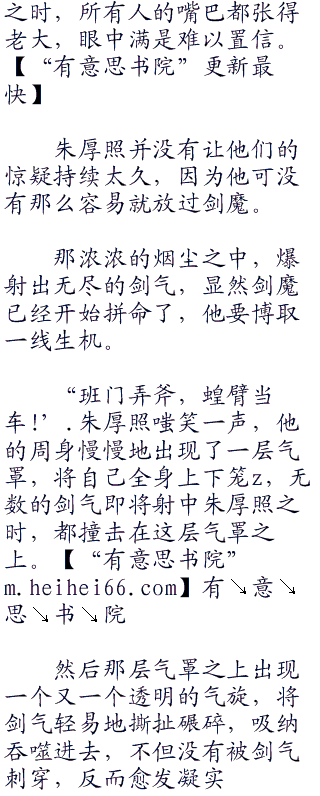 之时，所有人的嘴巴都张得
老大，眼中满是难以置信。
【“有意思书院”更新最
快】
朱厚照并没有让他们的
惊疑持续太久，因为他可没
有那么容易就放过剑魔。
那浓浓的烟尘之中，爆
射出无尽的剑气，显然剑魔
已经开始拼命了，他要博取
一线生机。
“班门弄斧，螳臂当
车!’.朱厚照嗤笑一声，他
的周身慢慢地出现了一层气
罩，将自己全身上下笼z，无
数的剑气即将射中朱厚照之
时，都撞击在这层气罩之
上。【“有意思书院”
m.heihei66.com】有↘意↘
思↘书↘院
然后那层气罩之上出现
一个又一个透明的气旋，将
剑气轻易地撕扯碾碎，吸纳
吞噬进去，不但没有被剑气
刺穿，反而愈发凝实